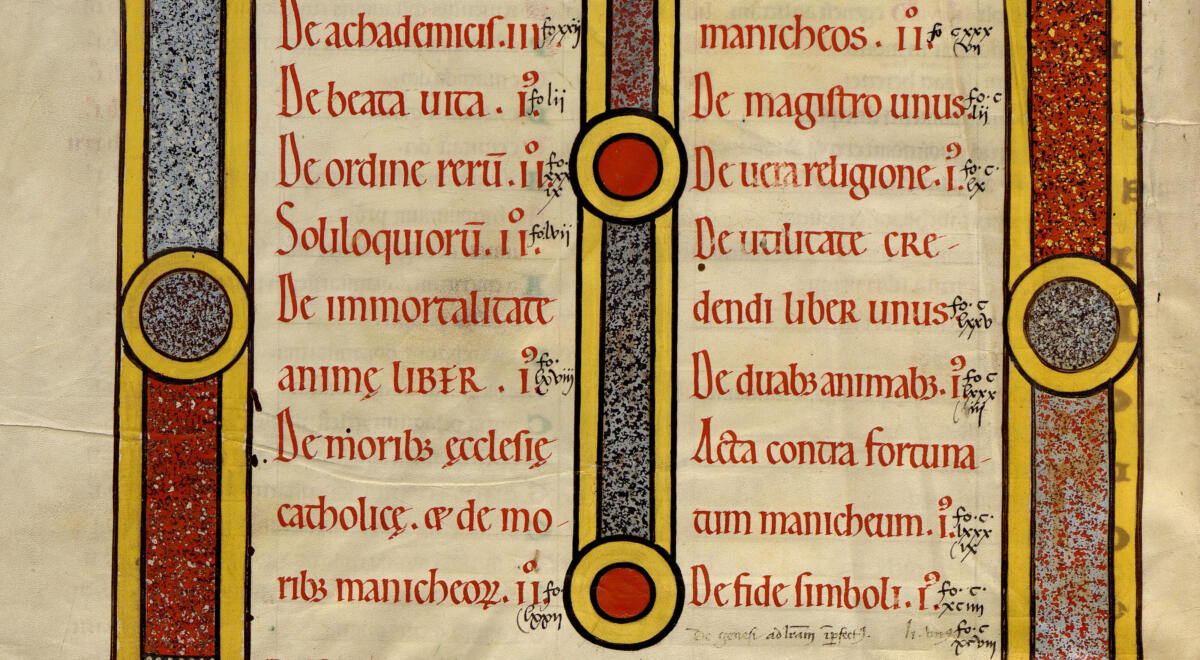 De achademicis. iii fo xxii
De beata uita. i. fo lii
De ordine rerū. ii fo. xxxix
Soliloquiorū. ii. fo lvii
De immortalitate
animę LIBER. i fo. lxviii
De moribꝫ ęcclesię
catholicę. & de mo-
ribꝫ manicheoꝝ. ii fo. lxxii
manicheos. ii. fo cxxxvii
De magistro unus. fo. c lii
De uera religione. i. fo. c. lx
De utilitate CRE-
dendi liber unus fo. c lxxv
De duabꝫ animabꝫ. i. fo c lxxxiii
Acta contra fortuna-
tum manicheum. i. fo. c. lxxxix
De fide simboli. i. fo. c. xciiii
De genesi ad lr̄am īperfect. li. un fo. c xcviii